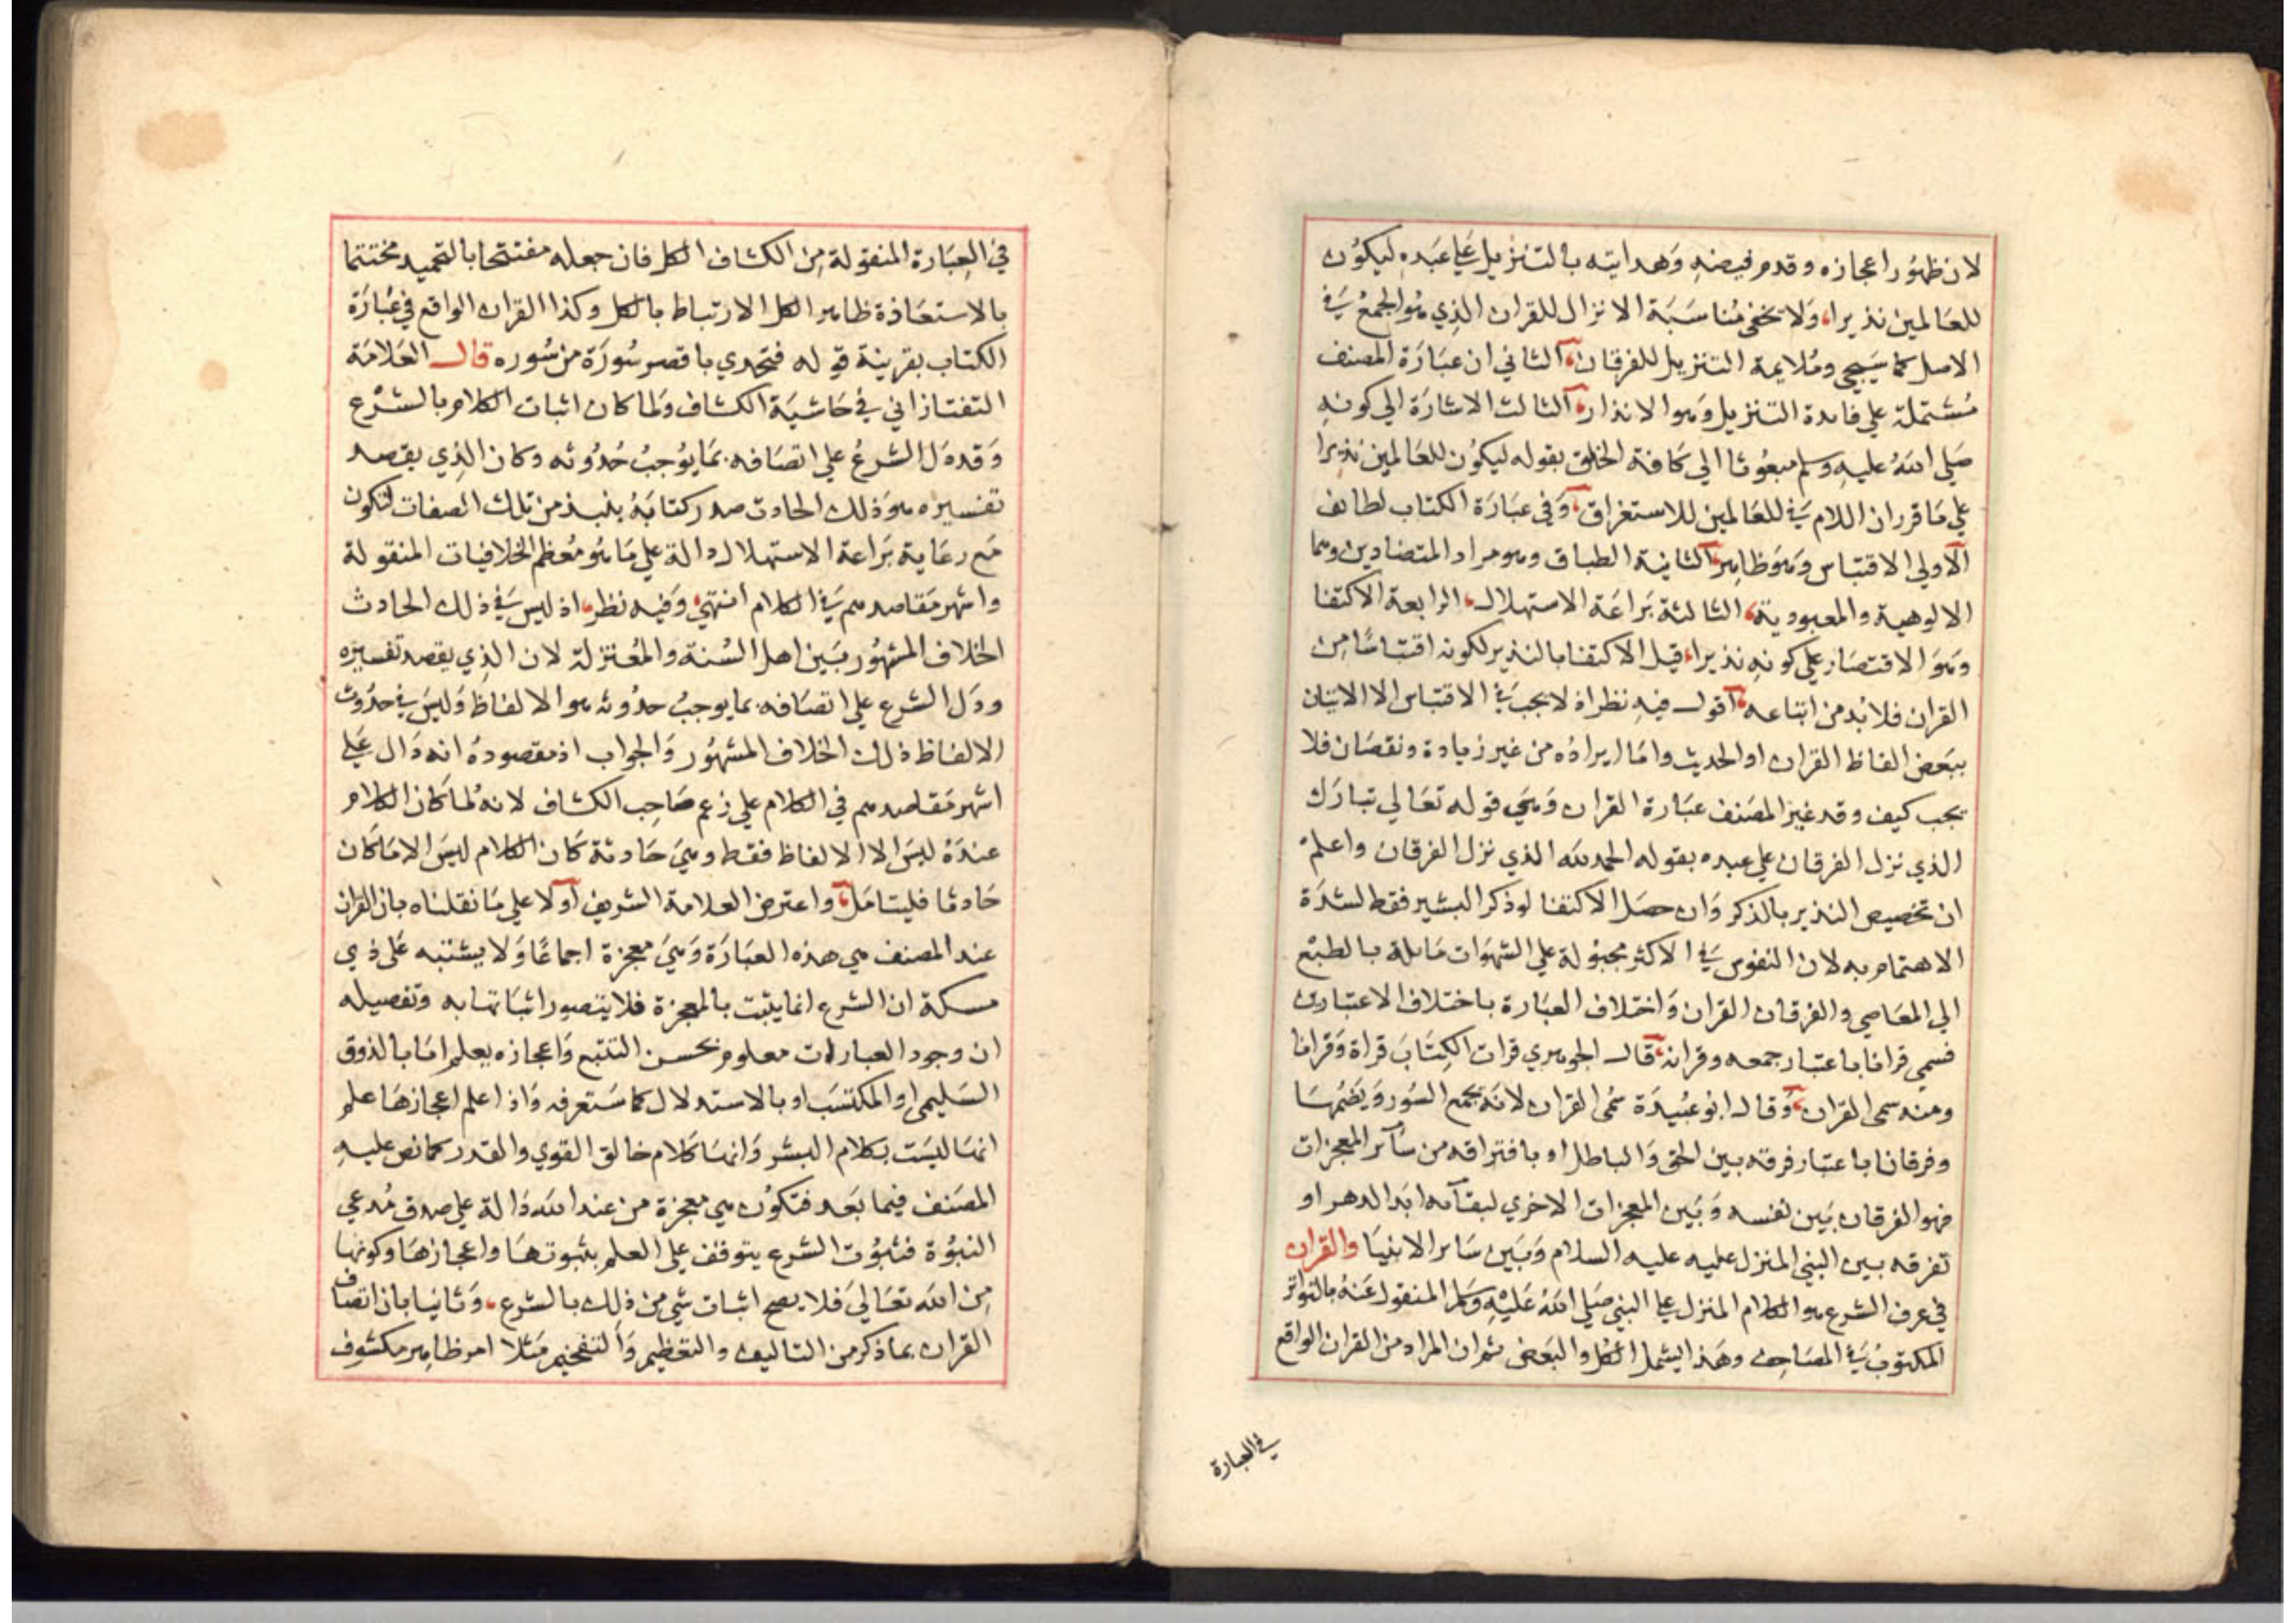 لان ظهور اعجازه وقدم فيضه وهدايته بالتنزيل على عبده ليكون
للعالمين نذيرا، ولا يخفى مناسبة الانزال للقران الذي هو الجمع في
الاصل كما سيجي وملايمة التنزيل للفرقان، الثاني ان عبارة المصنف
مشتملة علي فايدة التنزيل وهو الانذار، الثالث الاشارة الي كونه
صلي الله عليه وسلم مبعوثا الي كافة الخلق بقوله ليكون للعالمين نذيرا
علي ما قرر ان اللام في للعالمين للاستغراق، وفي عبارة الكتاب لطائف
الاولي الاقتباس وهو ظاهر، الثانية الطباق وهو مراد المتضادين وهما
الالوهية والمعبودية، الثالثة براعة الاستهلال، الرابعة الاكتفا
وهو الاقتصار علي كونه نذيرا، قيل الاكتفا بالنذير لكونه اقتباسا من
القران فلا بد من اتباعه، اقول فيه نظر اذ لا يجب في الاقتباس الا الاتيان
ببعض الفاظ القران او الحديث واما ايراده من غير زيادة ونقصان فلا
يجب كيف وقد غير المصنف عبارة القران وهي قوله تعالي تبارك
الذي نزل الفرقان علي عبده بقوله الحمد لله الذي نزل الفرقان واعلم
ان تخصيص النذير بالذكر وان حصل الاكتفا لو ذكر البشير فقط لشدة
الاهتمام به لان النفوس في الاكثر مجبولة علي الشهوات مايلة بالطبع
الي المعاصي والفرقان القران واختلاف العبارة باختلاف الاعتبارين
فسمي قرانا باعتبار جمعه وقرانه، قال الجوهري قرات الكتاب قراة وقرانا
ومنه سمي القران، وقال ابو عبيدة سمي القران لانه يجمع السور ويضمها
وفرقانا باعتبار فرقه بين الحق والباطل او بافتراقه من سآئر المعجزات
فهو الفرقان بين نفسه وبين المعجزات الاخري لبقآئه ابد الدهر او
تفرقه بين النبي المنزل عليه عليه السلام وبين ساير الانبيا والقران
في عرف الشرع هو الكلام المنزل علي النبي صلي الله عليه وسلم المنقول عنه بالتواتر
المكتوب في المصاحف وهذا يشمل الكل والبعض ثم ان المراد من القران الواقع
في العبارة
في العبارة المنقولة من الكشاف الكل فان جعله مفتتحا بالتحميد مختتما
بالاستعاذة ظاهر الكل الارتباط بالكل وكذا القران الواقع في عبارة
الكتاب بقرينة قوله فتحدي باقصر سورة من سوره قال العلامة
التفتازاني في حاشية الكشاف ولما كان اثبات الكلام بالشرع
وقد دل الشرع علي اتصافه بما يوجب حدوثه وكان الذي يقصد
تفسيره هو ذلك الحادث صدر كتابه بنبذ من تلك الصفات لتكون
مع رعاية براعة الاستهلال دالة علي ما هو معظم الخلافيات المنقولة
واشهر مقاصدهم في الكلام انتهي، وفيه نظر، اذ ليس في ذلك الحادث
الخلاف المشهور بين اهل السنة والمعتزلة لان الذي يقصد تفسيره
ودل الشرع علي اتصافه بما يوجب حدوثه هو الالفاظ وليس في حدوث
الالفاظ ذلك الخلاف المشهور والجواب اذ مقصوده انه دال علي
اشهر مقاصدهم في الكلام علي زعم صاحب الكشاف لانه لما كان الكلام
عنده ليس الا الالفاظ فقط وهي حادثة كان الكلام ليس الا ما كان
حادثا فليتامل، واعترض العلامة الشريف اولا علي ما نقلناه بان القران
عند المصنف هي هذه العبارة وهي معجزة اجماعا ولا يشتبه على ذي
مسكة ان الشرع انما يثبت بالمعجزة فلا يتصور اثباتها به وتفصيله
ان وجود العبارات معلوم بحسن التتبع واعجازه يعلم اما بالذوق
السليمي او المكتسب او بالاستدلال كما ستعرفه واذا علم اعجازها علم
انها ليست بكلام البشر وانها كلام خالق القوي والقدر كما نص عليه
المصنف فيما بعد فتكون هي معجزة من عند الله دالة علي صدق مدعي
النبوة فثبوت الشرع يتوقف علي العلم بثبوتها واعجازها وكونها
من الله تعالي فلا يصح اثبات شي من ذلك بالشرع، وثانيا بان اتصاف
القران بما ذكر من التاليف والتعظيم والتفخيم مثلا امر ظاهر مكشوف